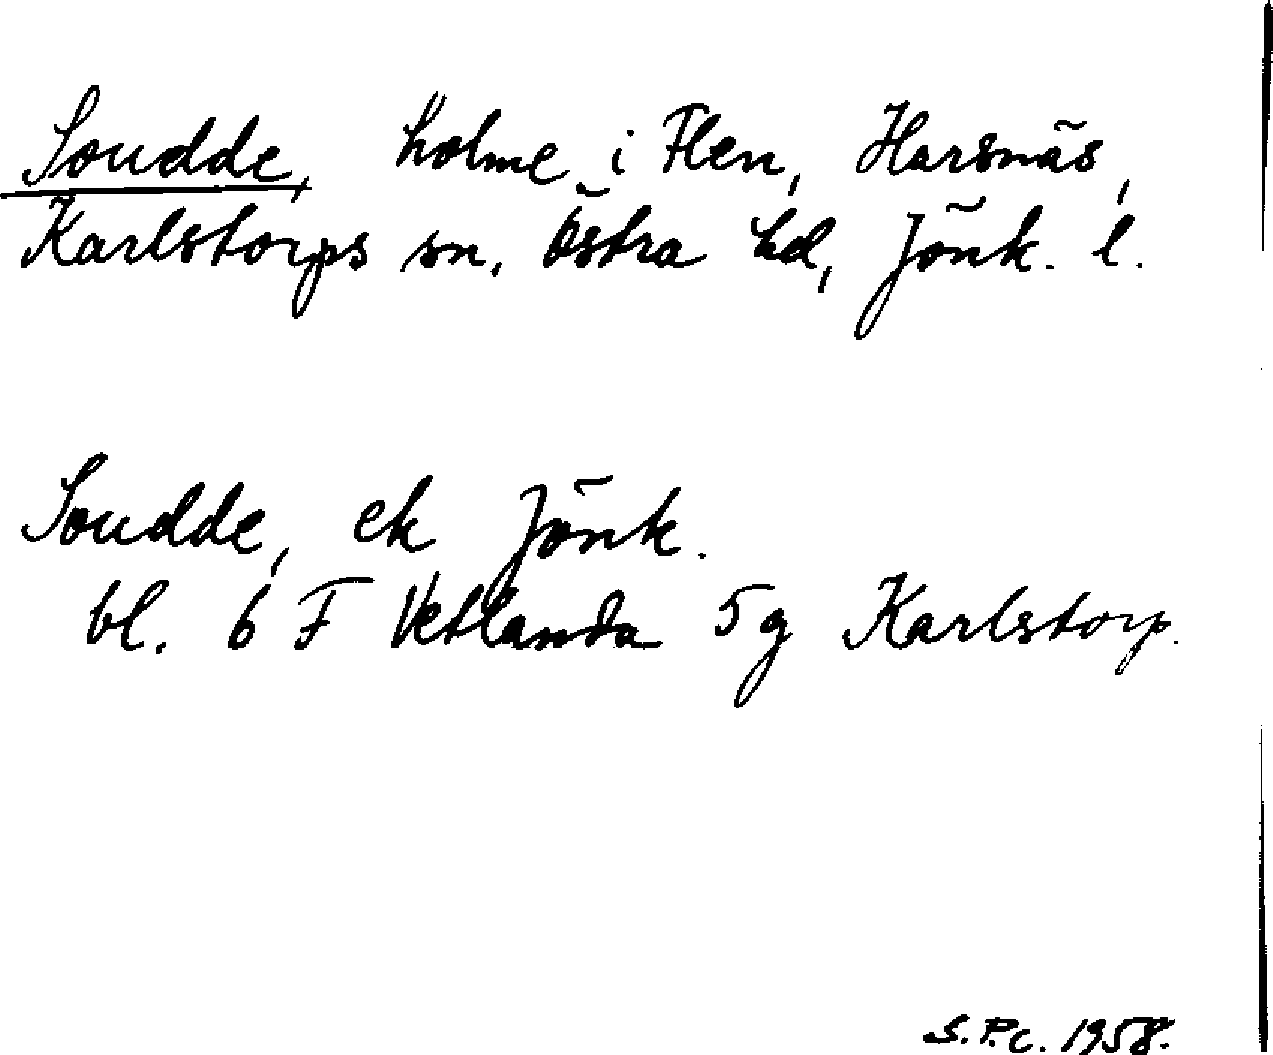 Soudde, holme i Flen, Harsnäs,
Karlstorps sn, Östra hd, Jönk. l.
Soudde, ek Jönk.
bl. 6 F Vetlanda 5g Karlstorp.
S.P.C. 1958.